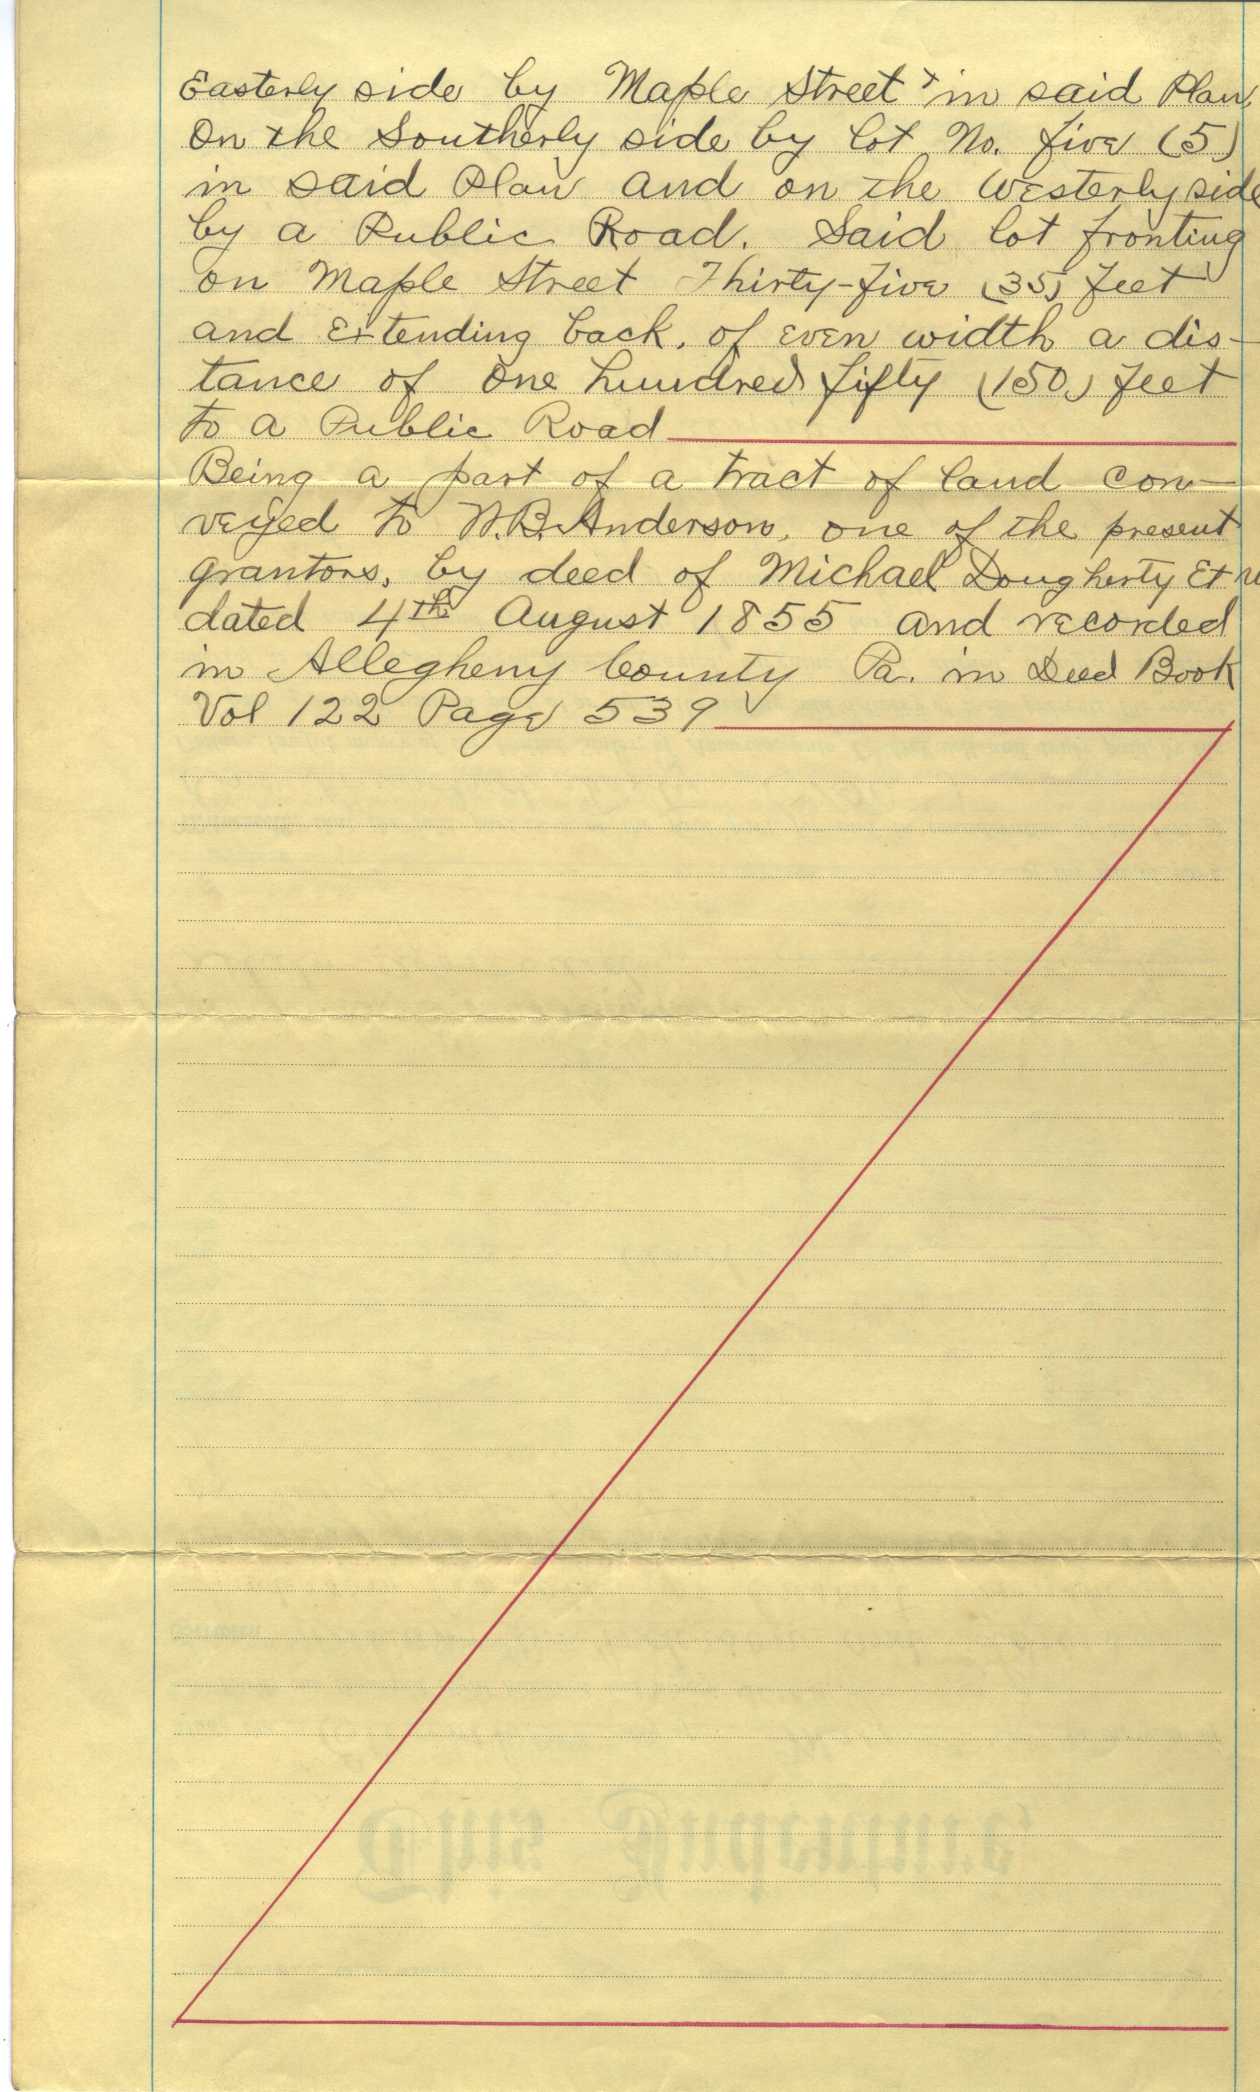 Easterly side by Maple Street in said Plan
On the Southerly side by lot No. five (5)
in said Plan and on the Westerly side
by a Public Road. Said lot fronting
on Maple Street Thirty-five (35) feet
and Extending back, of even width a dis-
tance of One hundred fifty (150) feet
to a Public Road
Being a part of a tract of land con-
veyed to W.B. Anderson, one of the present
grantors, by deed of Michael Dougherty Et
dated 4th August 1855 and recorded
in Allegheny County Pa. in Deed Book
Vol 122 Page 539
This Indenture,